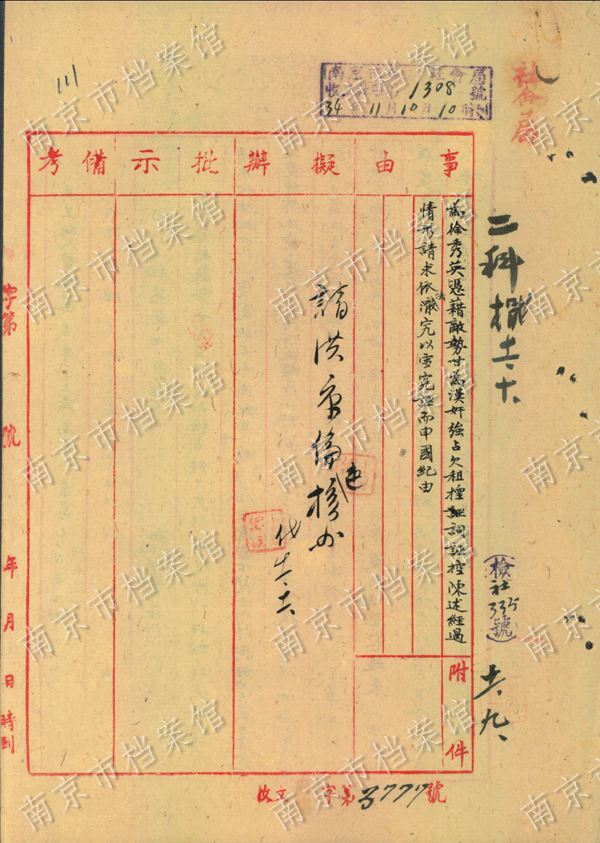 社會局
111
南京市 社會局
收 1308 號
34年11月10日10時到
二科 擬 十一、十
(檢社335號)
十一、九、
事由
擬辦
批示
備考
為徐秀英憑藉敵勢甘為漢奸強占欠租捏詞誣控陳述經過
情形請求依法澈究以雪冤誣而申國紀由
附件
請洪
核办
代 十一、十一
字第 號
年 月 日 時到
收文 字第3777號
南京市档案馆